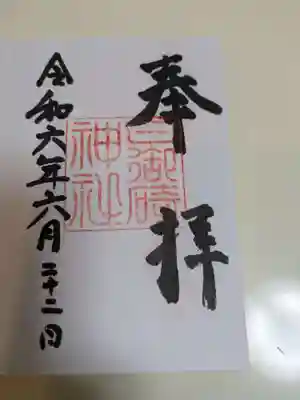 奉拝
三御崎
神社
令和六年六月二十二日